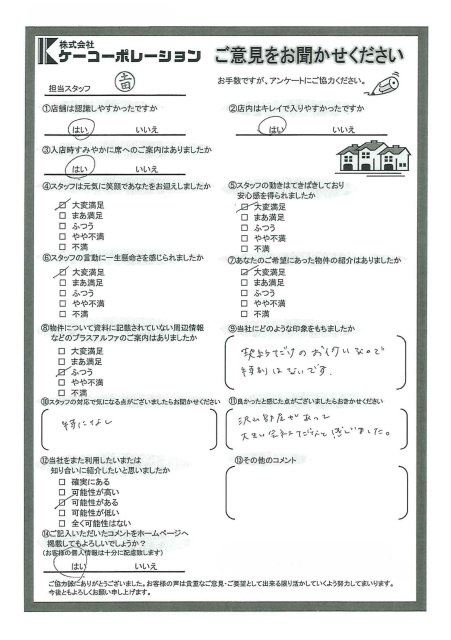 株式会社
ケーコーポレーション
ご意見をお聞かせください
担当スタッフ
お手数ですが、アンケートにご協力ください。
①店舗は認識しやすかったですか
はい いいえ
②店内はキレイで入りやすかったですか
はい いいえ
③入店時すみやかに席へのご案内はありましたか
はい いいえ
④スタッフは元気に笑顔であなたをお迎えしましたか
□ 大変満足
□ まあ満足
□ ふつう
□ やや不満
□ 不満
⑤スタッフの動きはてきぱきしており
安心感を得られましたか
□ 大変満足
□ まあ満足
□ ふつう
□ やや不満
□ 不満
⑥スタッフの言動に一生懸命さを感じられましたか
□ 大変満足
□ まあ満足
□ ふつう
□ やや不満
□ 不満
⑦あなたのご希望にあった物件の紹介はありましたか
□ 大変満足
□ まあ満足
□ ふつう
□ やや不満
□ 不満
⑧物件について資料に記載されていない周辺情報
などのプラスアルファのご案内はありましたか
□ 大変満足
□ まあ満足
□ ふつう
□ やや不満
□ 不満
⑨当社にどのような印象をもちましたか
契約だけのお付合いなので
特別はないです。
⑩スタッフの対応で気になる点がございましたらお聞かせください
特になし
⑪良かったと感じた点がございましたらおきかせください
沢山部屋があって
大きい会社だなと感じました。
⑫当社をまた利用したいまたは
知り合いに紹介したいと思いましたか
□ 確実にある
□ 可能性が高い
□ 可能性がある
□ 可能性が低い
□ 全く可能性はない
⑬その他のコメント
⑭ご記入いただいたコメントをホームページへ
掲載してもよろしいでしょうか?
(お客様の個人情報は十分に配慮致します)
はい いいえ
ご協力誠にありがとうございました。お客様の声は貴重なご意見・ご要望として出来る限り活かしていくよう努力してまいります。
今後ともよろしくお願い申し上げます。